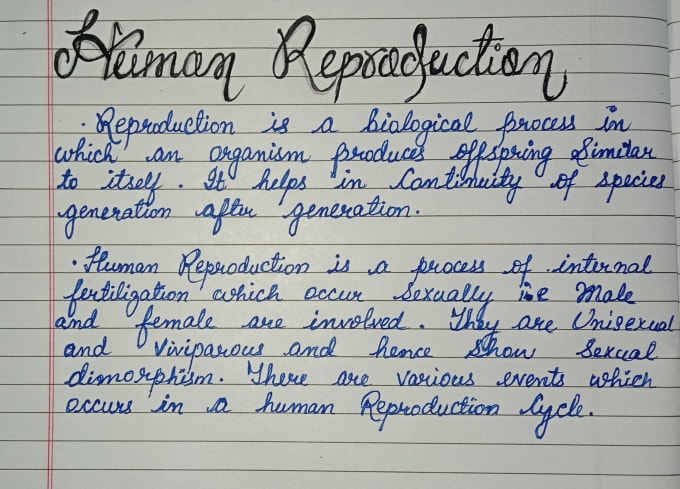 Human Reproduction
· Reproduction is a biological process in
which an organism produces offspring Similar
to itself. It helps in Continuity of species
generation after generation.
· Human Reproduction is a process of internal
fertilization which occur Sexually i.e Male
and female are involved. They are Unisexual
and Viviparous and hence Show Sexual
dimorphism. There are various events which
occurs in a human Reproduction Cycle.